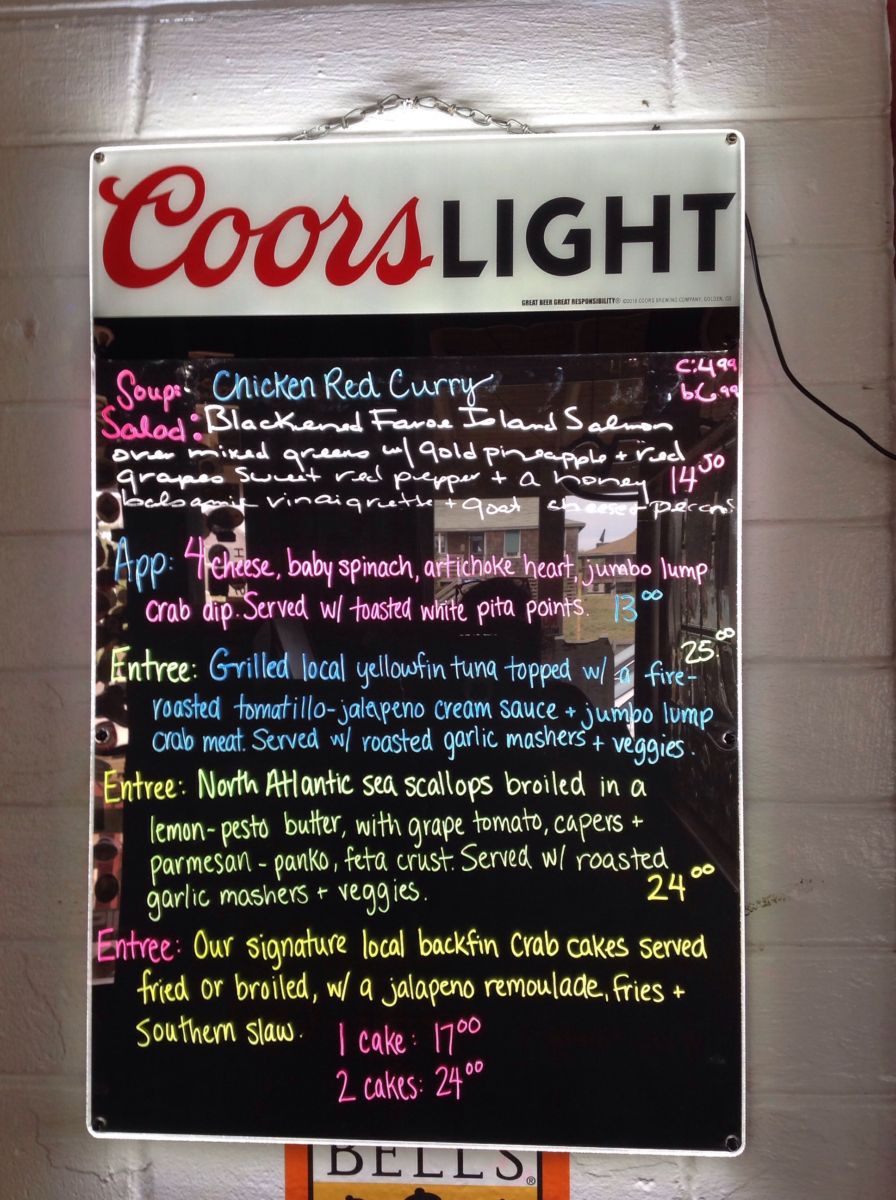 Coors LIGHT
GREAT BEER GREAT RESPONSIBILITY® ©2018 COORS BREWING COMPANY, GOLDEN, CO
Soup: Chicken Red Curry c:4.99
b:6.99
Salad: Blackened Faroe Island Salmon
over mixed greens w/ gold pineapple + red
grapes sweet red pepper + a honey 14 50
balsamic vinaigrette + goat cheese + pecans
App: 4 cheese, baby spinach, artichoke heart, jumbo lump
crab dip. Served w/ toasted white pita points. 13 00
25.00
Entree: Grilled local yellowfin tuna topped w/ a fire-
roasted tomatillo-jalapeno cream sauce + jumbo lump
crab meat. Served w/ roasted garlic mashers + veggies.
Entree: North Atlantic sea scallops broiled in a
lemon-pesto butter, with grape tomato, capers +
parmesan-panko, feta crust. Served w/ roasted
garlic mashers + veggies. 24 00
Entree: Our signature local backfin crab cakes served
fried or broiled, w/ a jalapeno remoulade, fries +
Southern slaw.
1 cake: 17 00
2 cakes: 24 00
BELL'S®